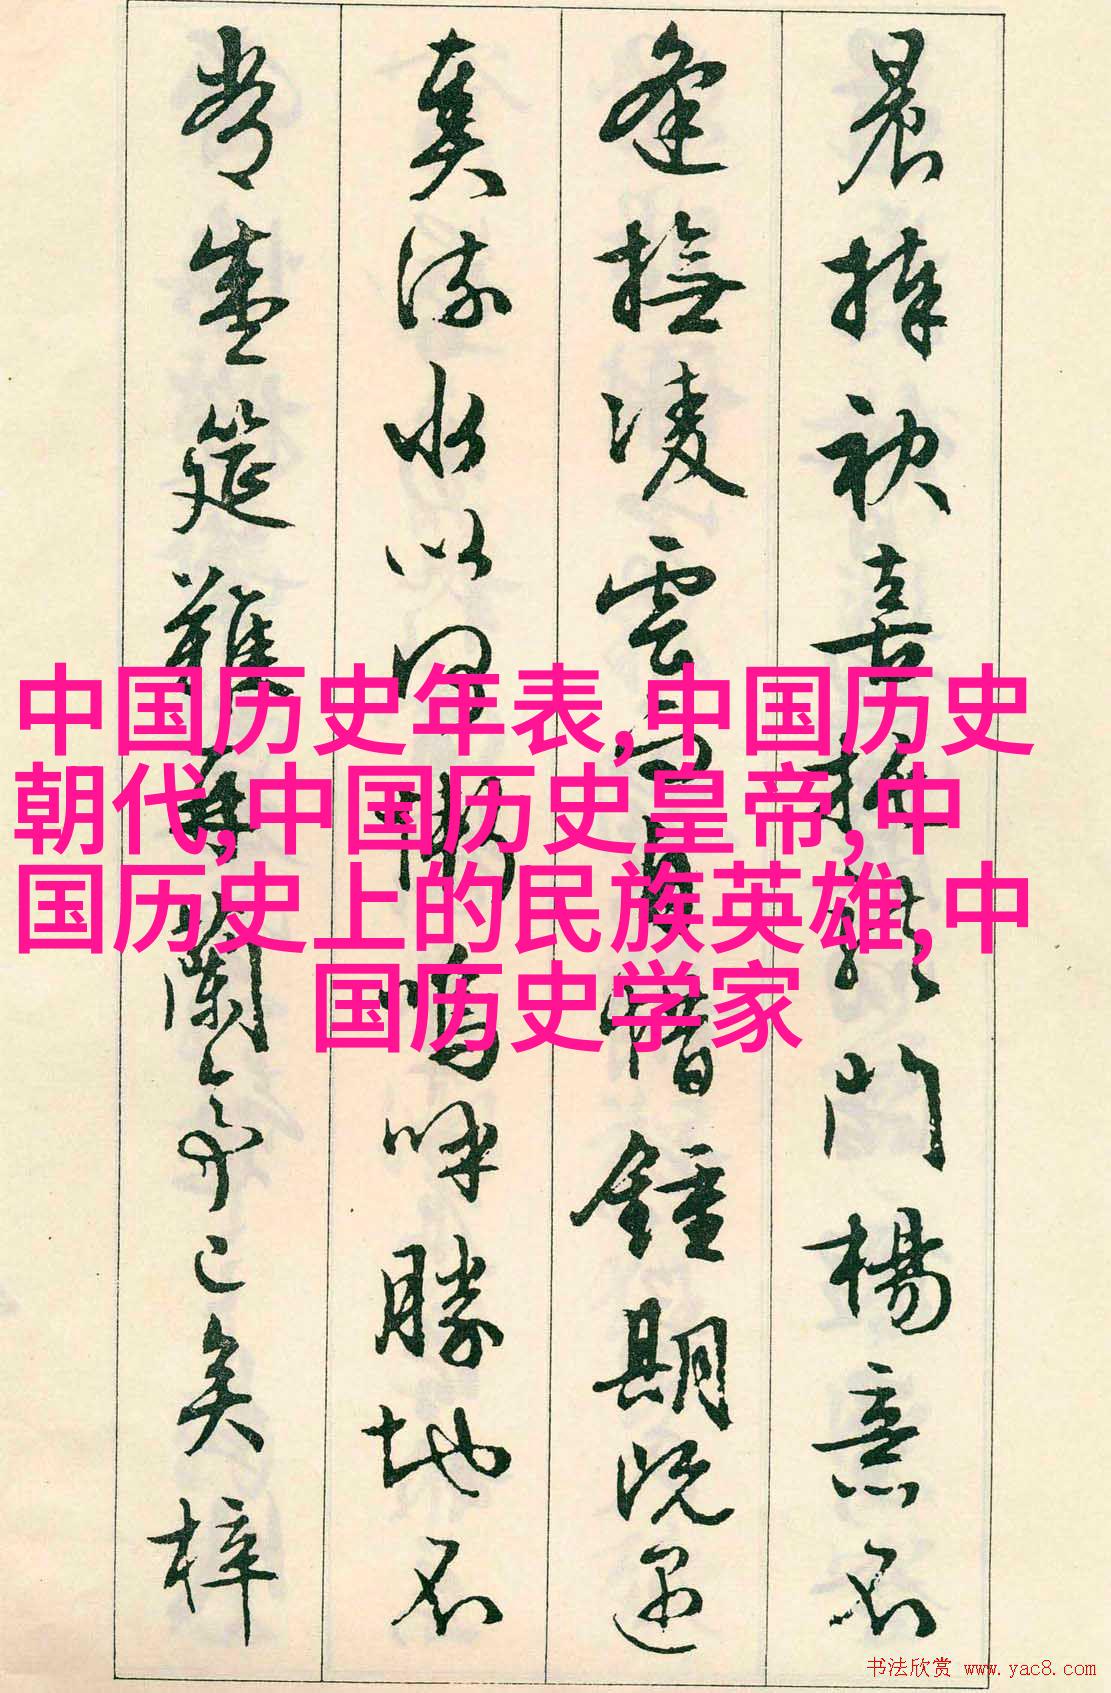 晨捧袂喜托龍門楊意不
逢撫凌雲而自惜鍾期既遇
奏流水以何慚嗚呼勝地不
常盛筵難再蘭亭已矣梓
中国历史年表,中国历史
朝代,中国历史皇帝,中
国历史上的民族英雄,中
国历史学家
书法欣赏 www.yac8.com